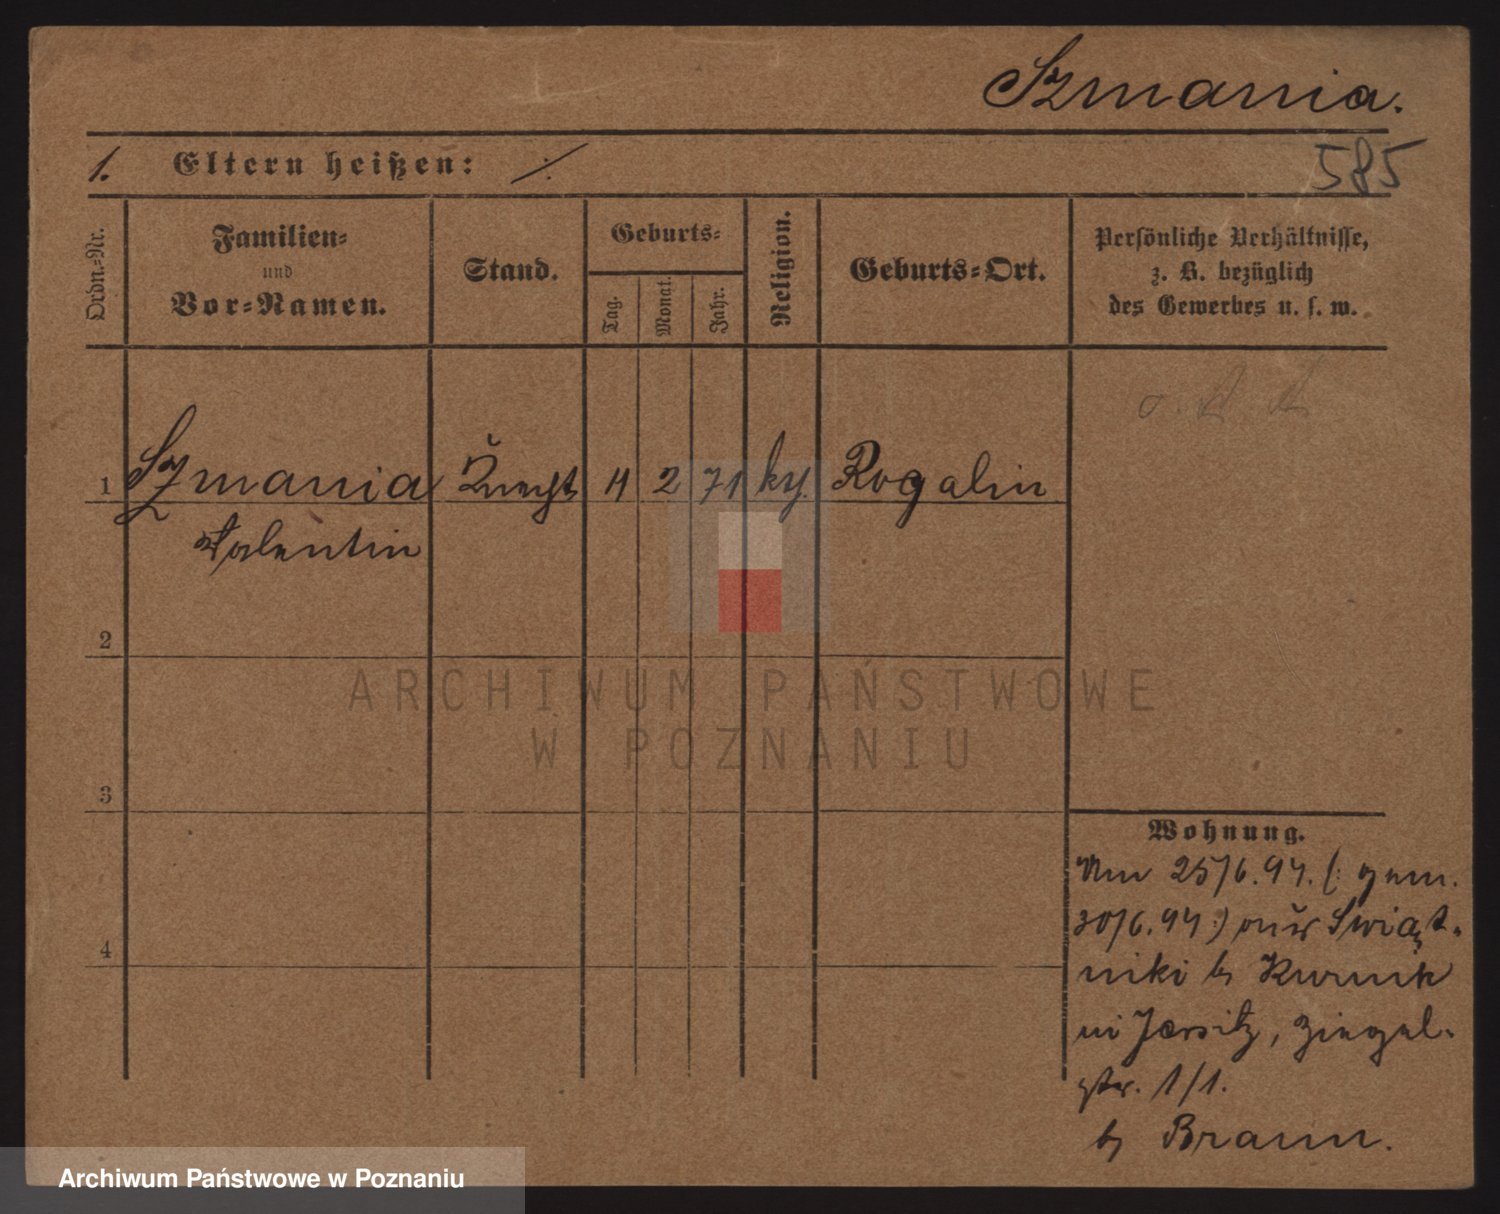 Szmania.
585
1. Eltern heißen: ⁒
Ordn.-Nr.
Familien-
und
Vor-Namen.
Stand.
Geburts-
Tag.
Monat.
Jahr.
Religion.
Geburts-Ort.
Persönliche Verhältnisse,
z. B. bezüglich
des Gewerbes u. s. w.
1 Szmania Knecht 4 2 71 kg. Rogalin
Valentin
2
3
4
ARCHIWUM PAŃSTWOWE
W POZNANIU
Wohnung.
Um 25/6.94. (: gem.
30/6.94 :) aus Swiąt-
niki b/ Kurnik
in Jersitz, Ziegel-
str. 1/1.
b/ Braun.
Archiwum Państwowe w Poznaniu